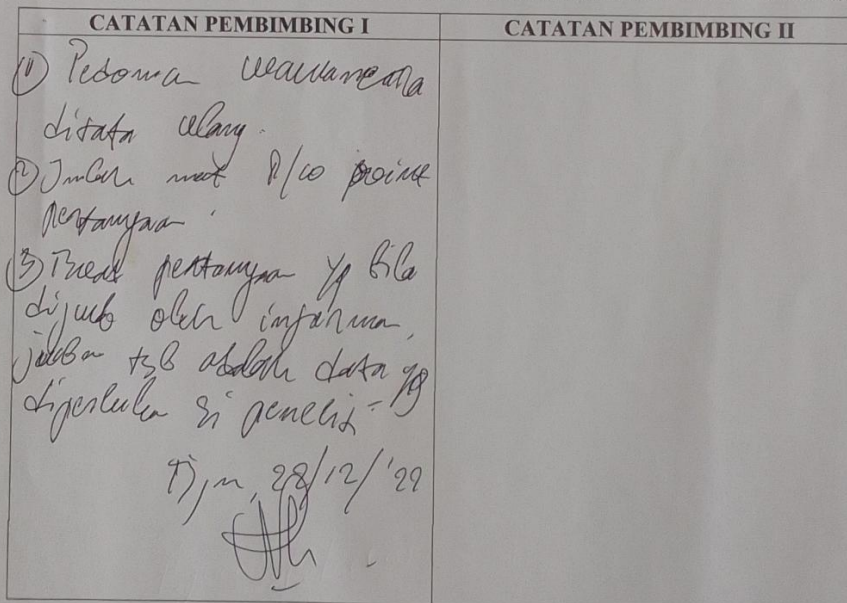 CATATAN PEMBIMBING I
CATATAN PEMBIMBING II
① Pedoman wawancara
ditata ulang.
② Jumlah 8/10 point
pertanyaan
③ Buat pertanyaan yg bila
dijwb oleh informan,
jwban tsb adalah data yg
diperlukan si peneliti
28/12/'22